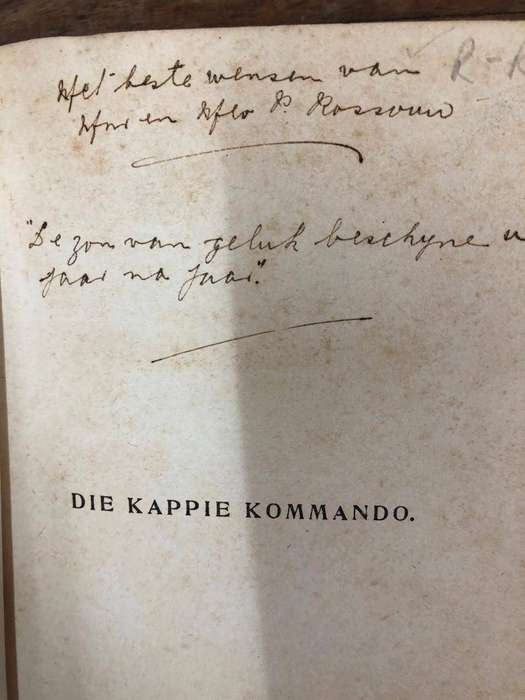 Met beste wensen van
Mnr en Mev P. Rossouw
R-
"De zon van geluk beschyne u
jaar na jaar."
DIE KAPPIE KOMMANDO.